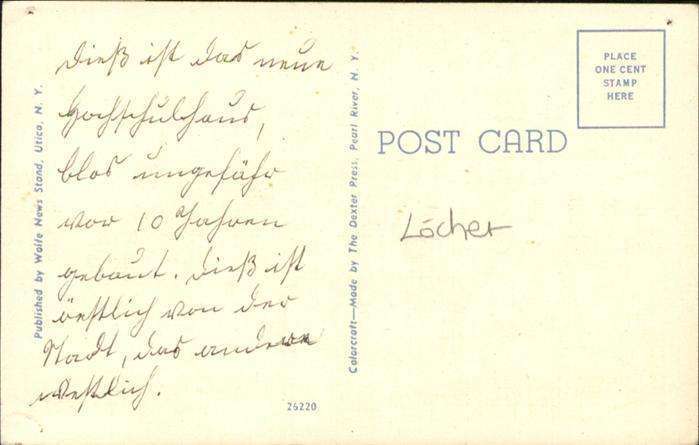 Dieß ist das neue
Hochschulhaus,
blos ungefähr
vor 10 Jahren
gebaut. Dieß ist
östlich von der
Stadt, das andere
westlich.
Published by Wolfe News Stand, Utica, N. Y.
Colorcraft—Made by The Dexter Press, Pearl River, N. Y.
26220
POST CARD
PLACE
ONE CENT
STAMP
HERE
Löcher